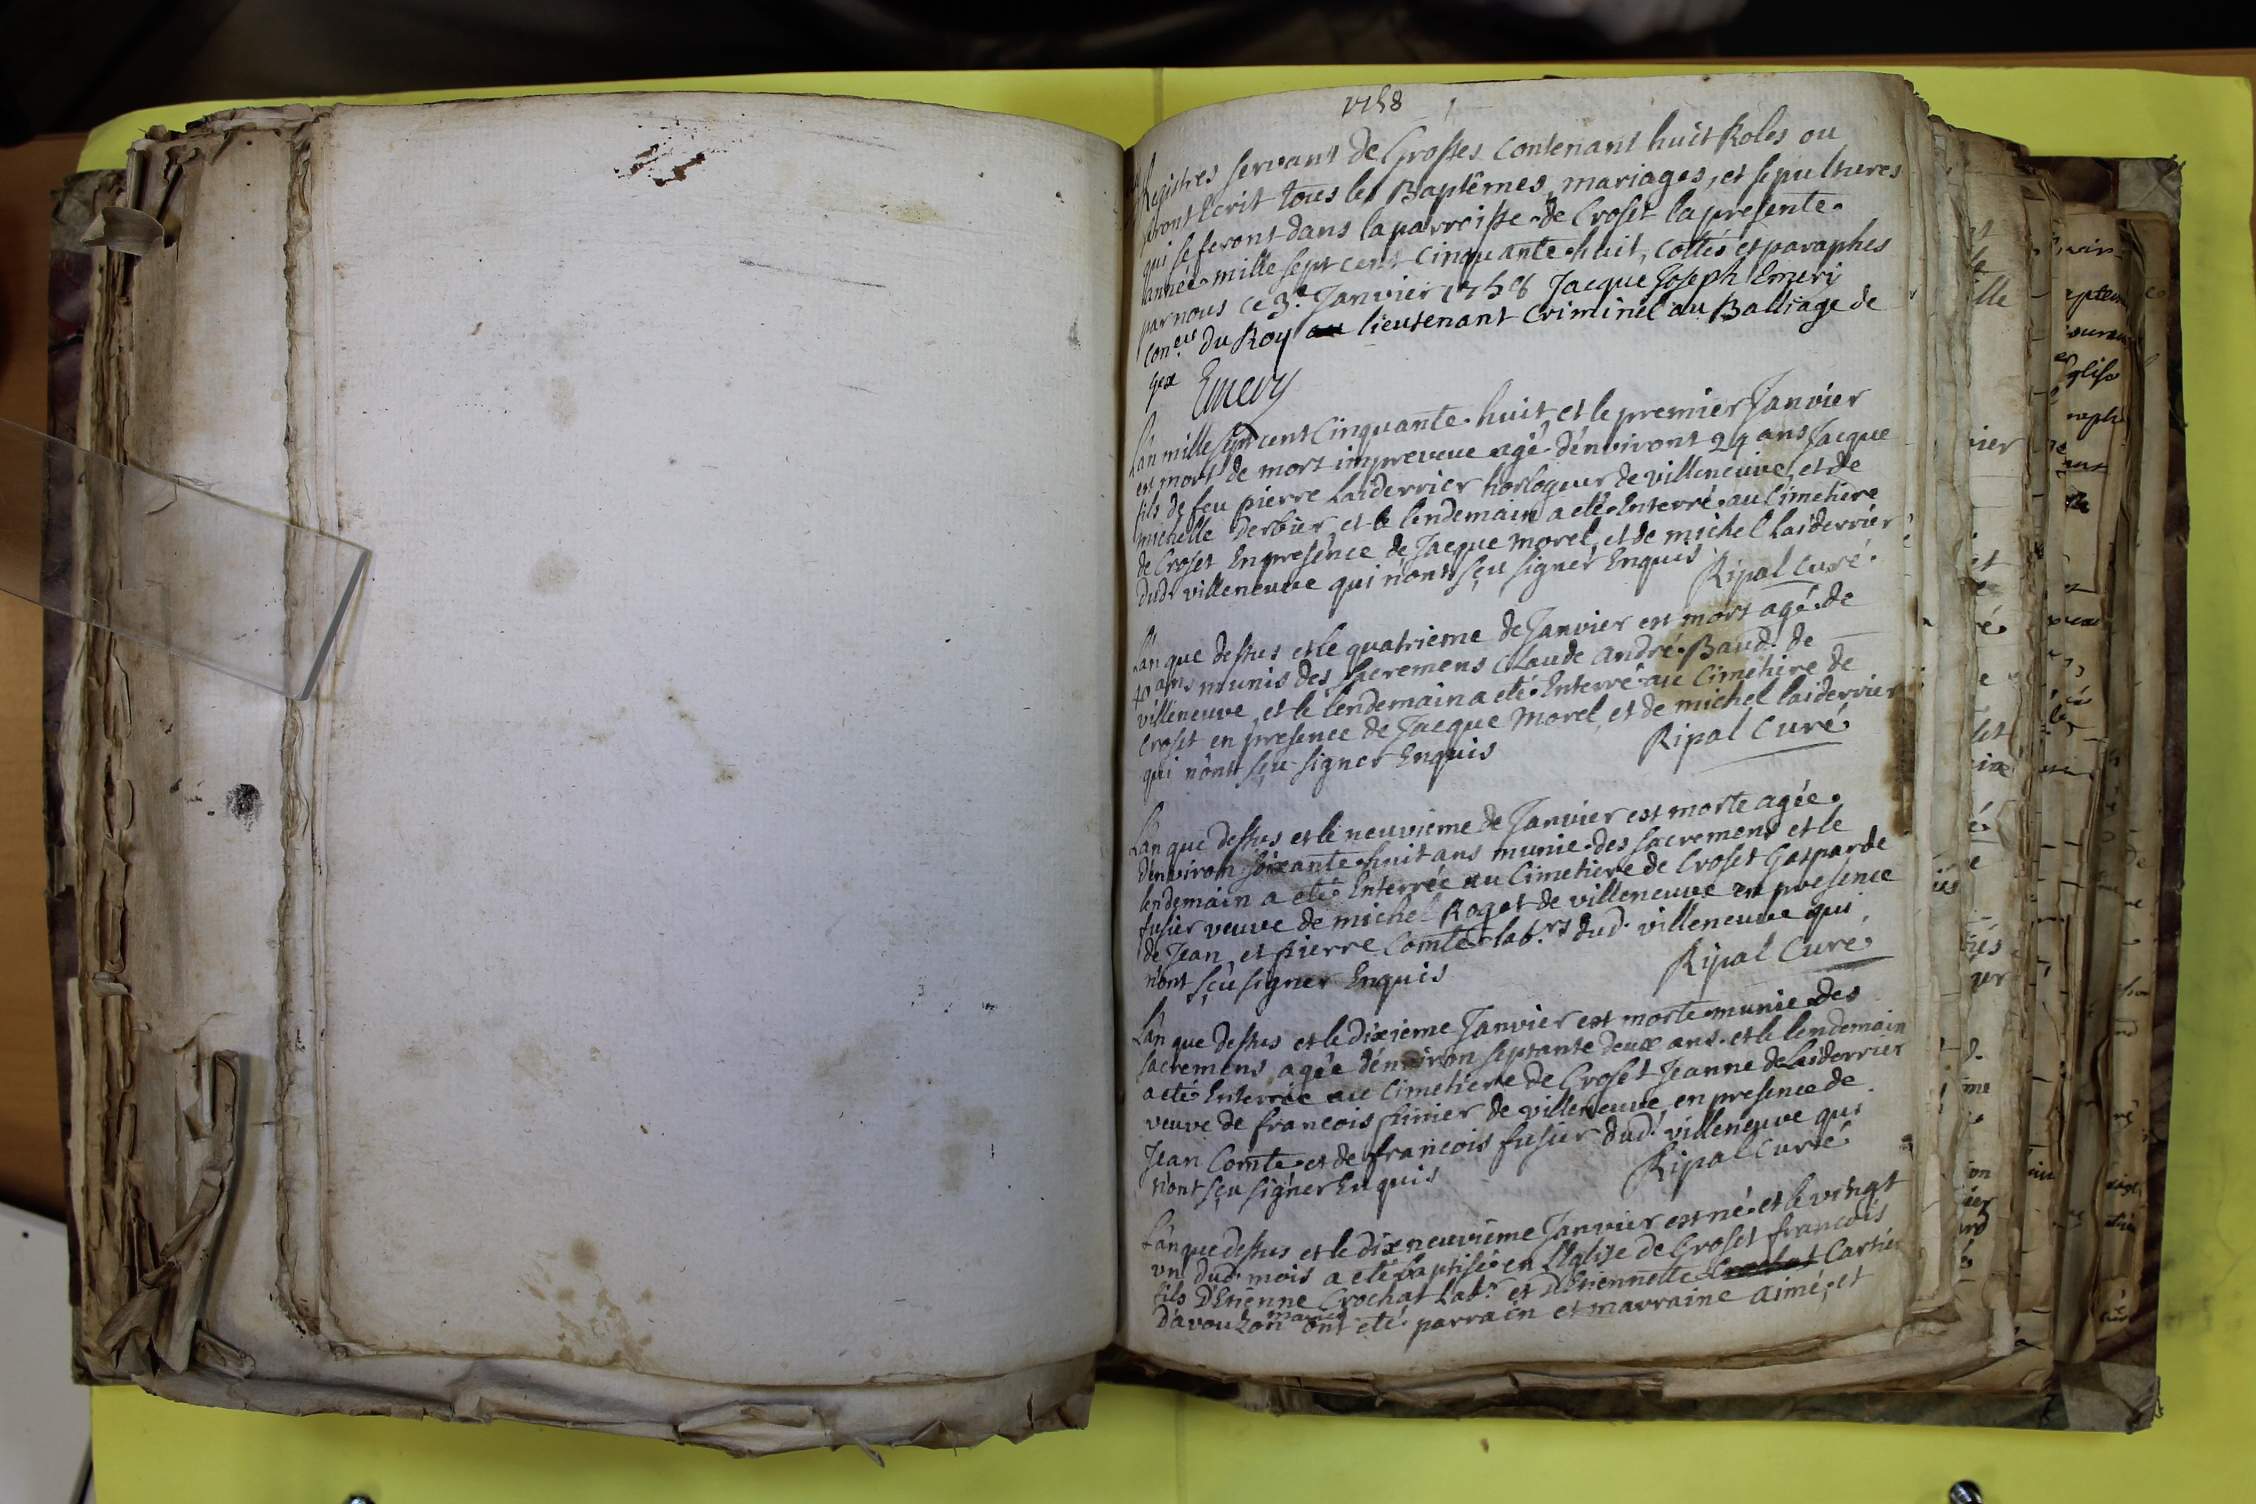 1758 1
Registres servant de Grosses contenant huit Roles ou
seront Ecrit tous les Baptêmes, mariages, et sepultures
qui se feront dans la parroisse de Croset la presente
année mille sept cent cinquante huit, cottés et paraphés
par nous ce 3e Janvier 1758 Jacque Joseph Emery
Coner du Roy lieutenant Criminel au Balliage de
Gex Emery
L'an mille sept cent Cinquante huit et le premier Janvier
est mort de mort impreveue agé d'environt 24 ans Jacque
fils de feu pierre Laiderrier horloguer de villeneuve, et de
michelle Derbier, et le lendemain a eté Enterré au Cimetiere
de Croset En presence de Jacque Morel, et de michel Laiderrier
dud. villeneuve qui n'ont sçu signer Enquis Ripal Curé.
L'an que dessus et le quatrieme de Janvier est mort agé de
40 ans munis des sacremens Claude André Baud de
villeneuve et le lendemain a eté Enterré au Cimetiere de
Croset en presence de Jacque Morel, et de michel laiderrier
qui n'ont sçu signer Enquis Ripal Curé
L'an que dessus et le neuvieme de Janvier est morte agée
d'environ soixante huit ans munie des sacremens et le
lendemain a eté Enterrée au Cimetiere de Croset Gasparde
fusier veuve de michel Roget de villeneuve en presence
de Jean, et pierre Comte lab.rs dud. villeneuve qui
n'ont sçu signer Enquis Ripal Curé
L'an que dessus et le dixieme Janvier est morte munie des
sacremens agée d'environ septante deux ans et le lendemain
a eté Enterrée au Cimetiere de Croset Jeanne de Laiderrier
veuve de francois de villeneuve en presence de
Jean Comte et de francois fusier dud. villeneuve qui
n'ont sçu signer Enquis Ripal Curé
L'an que dessus et le dix neuvieme Janvier est né et le vingt
un dud. mois a eté baptisé en L'Eglise de Croset francois
fils D'Etienne Crochat Lab.r et D'Etiennette Cartier
D'avouzon mariés ont eté parrain et marraine aimé, et